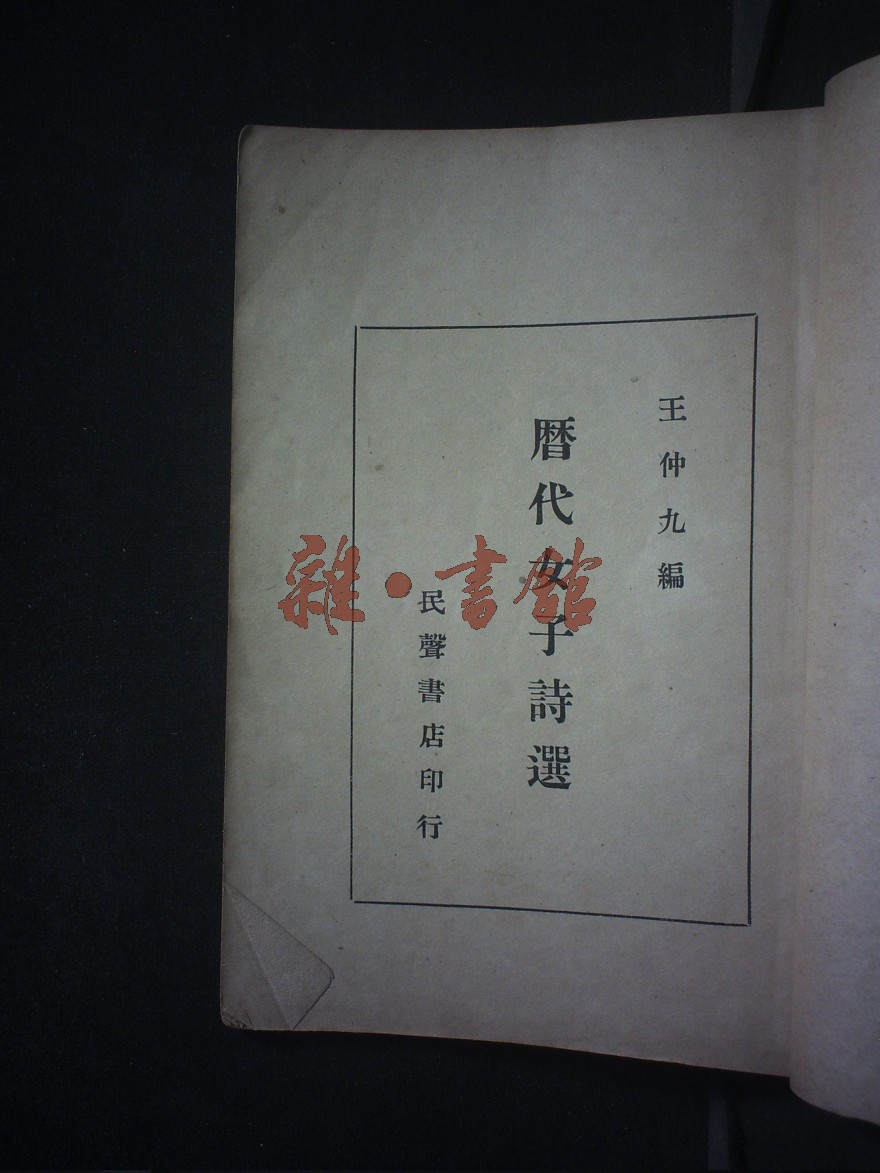 王仲九編
曆代女子詩選
民聲書店印行
雜·書館